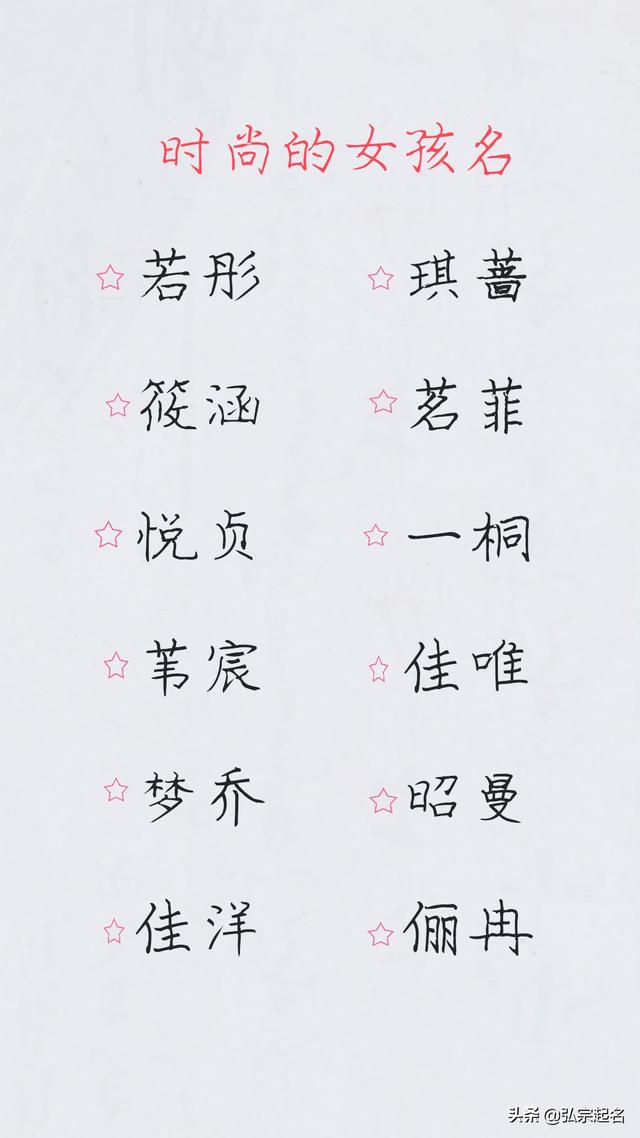 时尚的女孩名
☆若彤 ☆琪蔷
☆筱涵 ☆茗菲
☆悦贞 ☆一桐
☆苇宸 ☆佳唯
☆梦乔 ☆昭曼
☆佳洋 ☆俪冉
头条 @弘宗起名